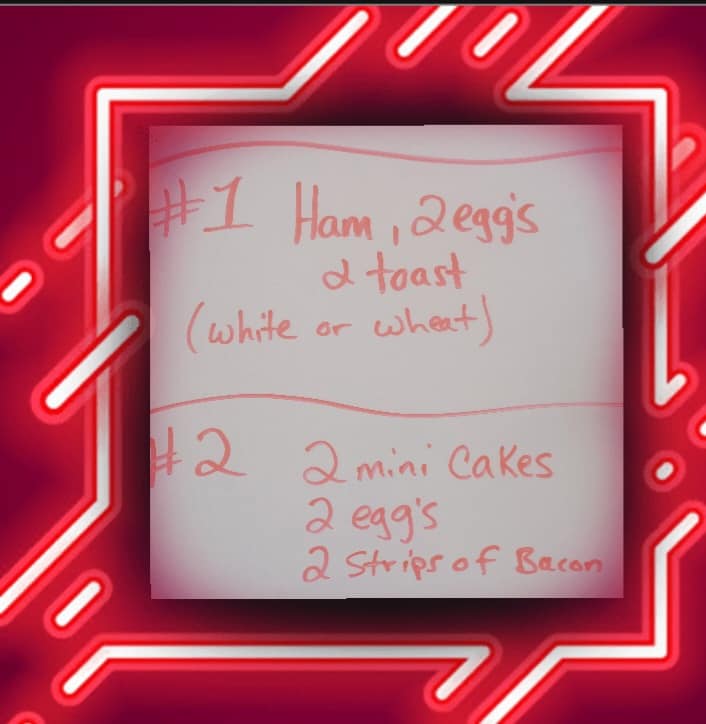 #1 Ham, 2 egg's
2 toast
(white or wheat)
#2 2 mini Cakes
2 egg's
2 Strips of Bacon